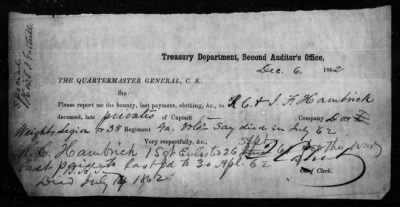 Treasury Department, Second Auditor's Office,
Dec. 6. 1862
THE QUARTERMASTER GENERAL, C. S.
Sir
Please report me the bounty, last payment, clothing, &c., to R C & J F Hambrick
deceased, late privates of Captain Company D or E
Wrights Legion or 38 Regiment Ga. Vols Say died in July 62
Very respectfully, &c.,
R. C. Hambrick 1 Sgt Enlisted 26 Sept 61 for the war
Last paid to 30 Apl. 62
Chief Clerk.
Died July 14 1862